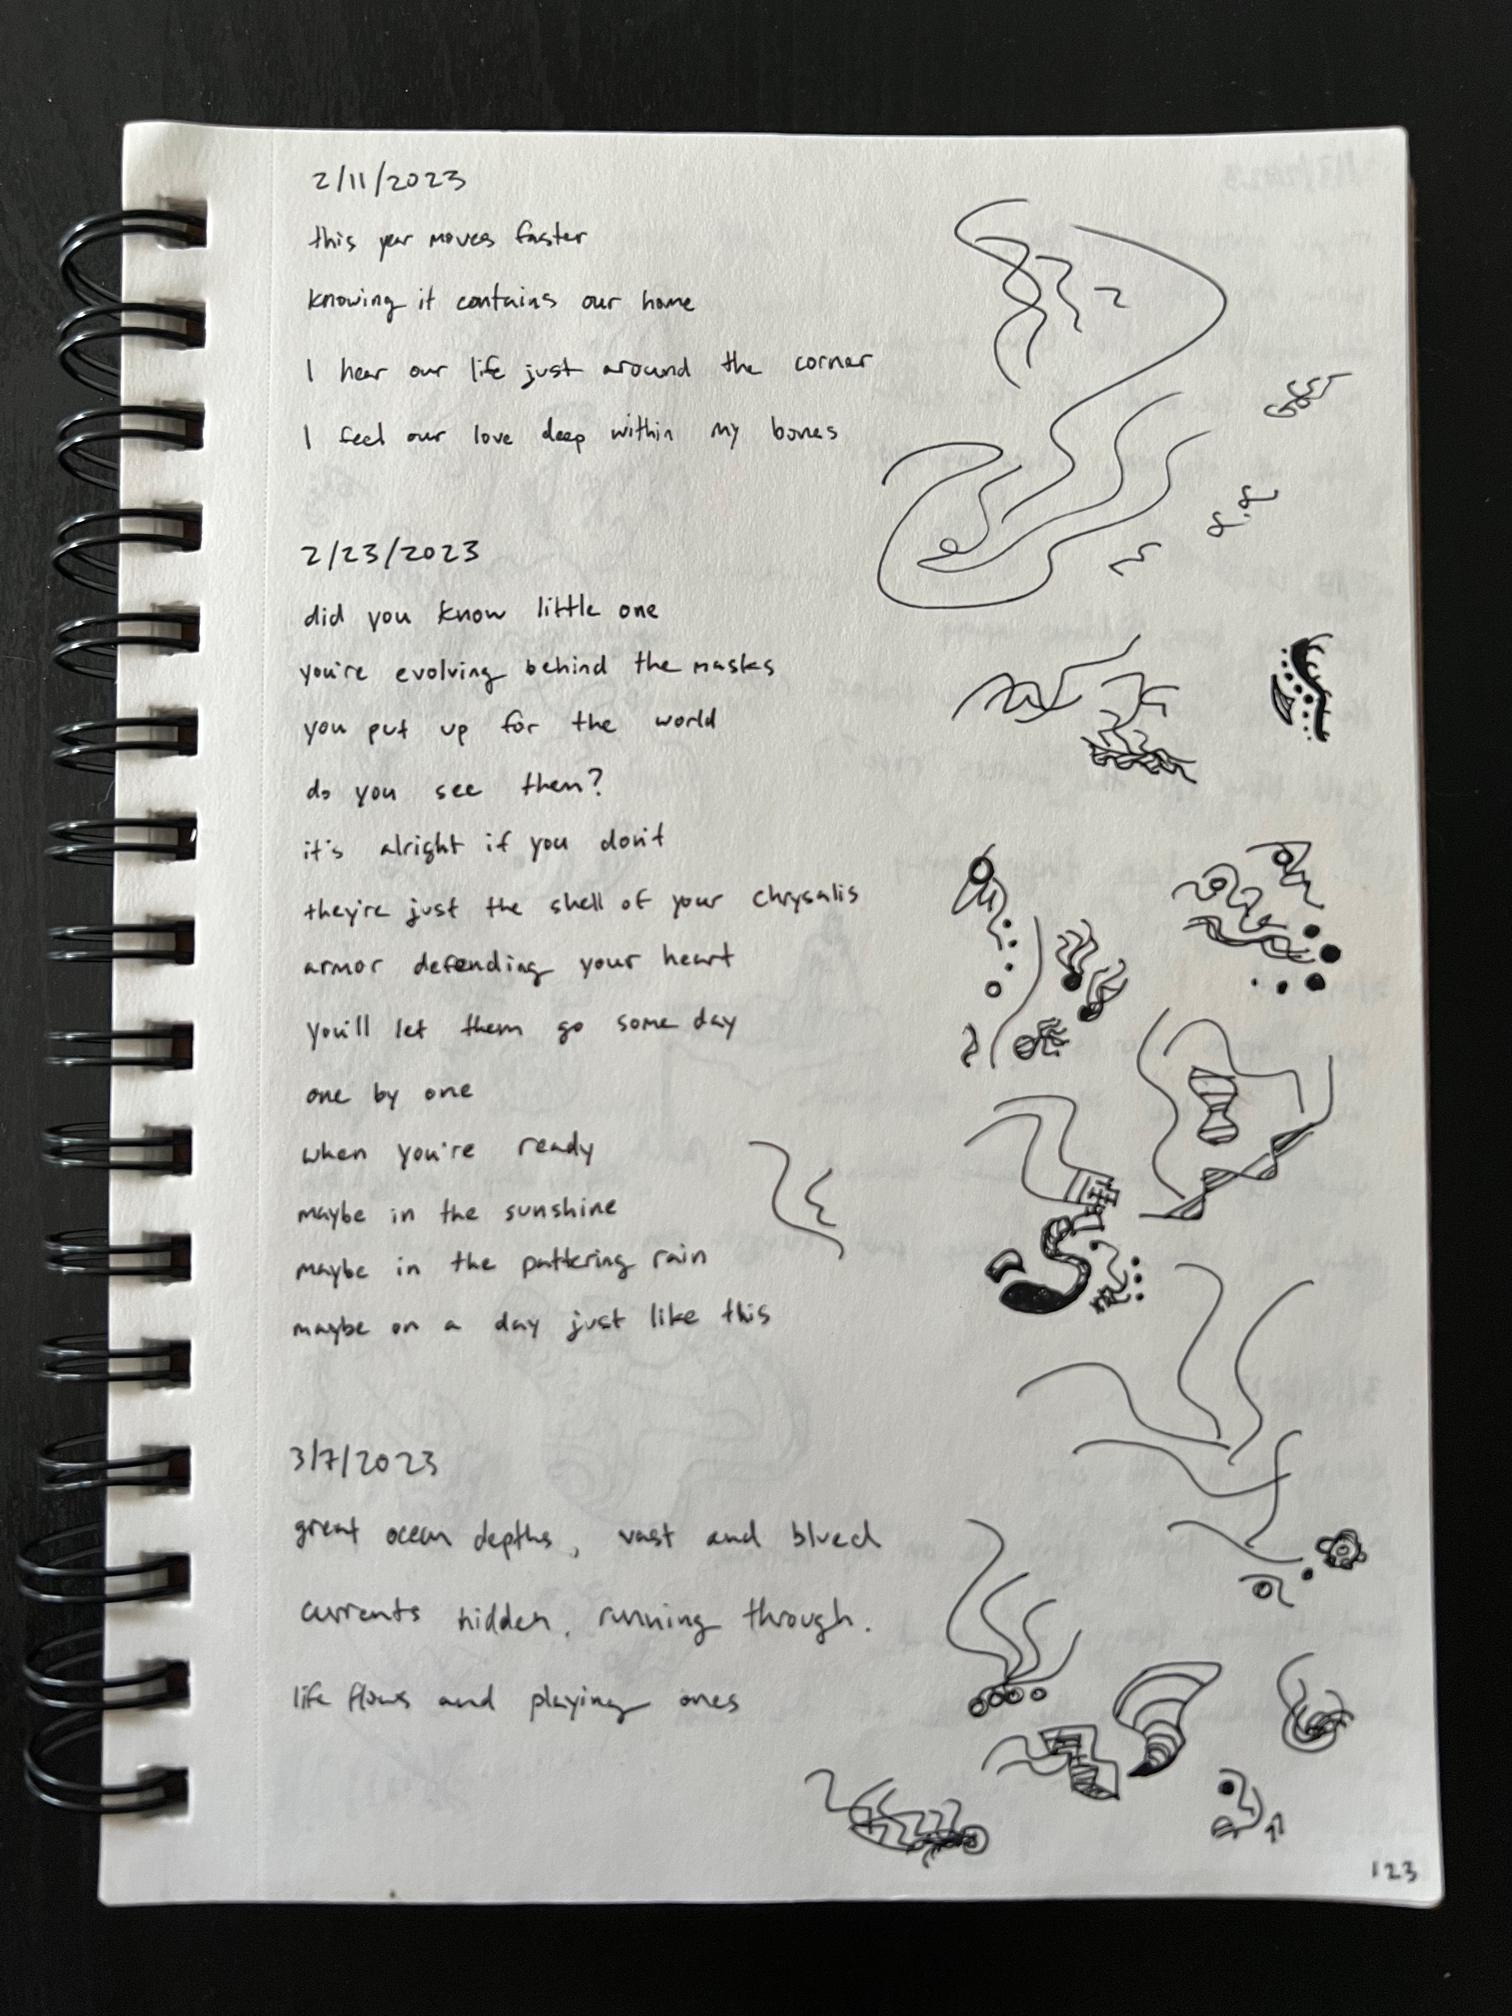 2/11/2023
this year moves faster
knowing it contains our home
I hear our life just around the corner
I feel our love deep within my bones
2/23/2023
did you know little one
you're evolving behind the masks
you put up for the world
do you see them?
it's alright if you don't
they're just the shell of your chrysalis
armor defending your heart
you'll let them go some day
one by one
when you're ready
maybe in the sunshine
maybe in the pattering rain
maybe on a day just like this
3/7/2023
great ocean depths, vast and blued
currents hidden, running through.
life flows and playing ones
123